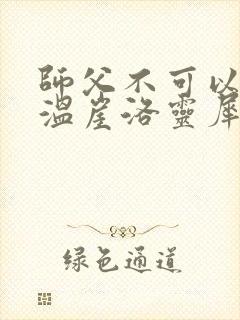 師父不可以
溫崖洛靈犀
綠色通道